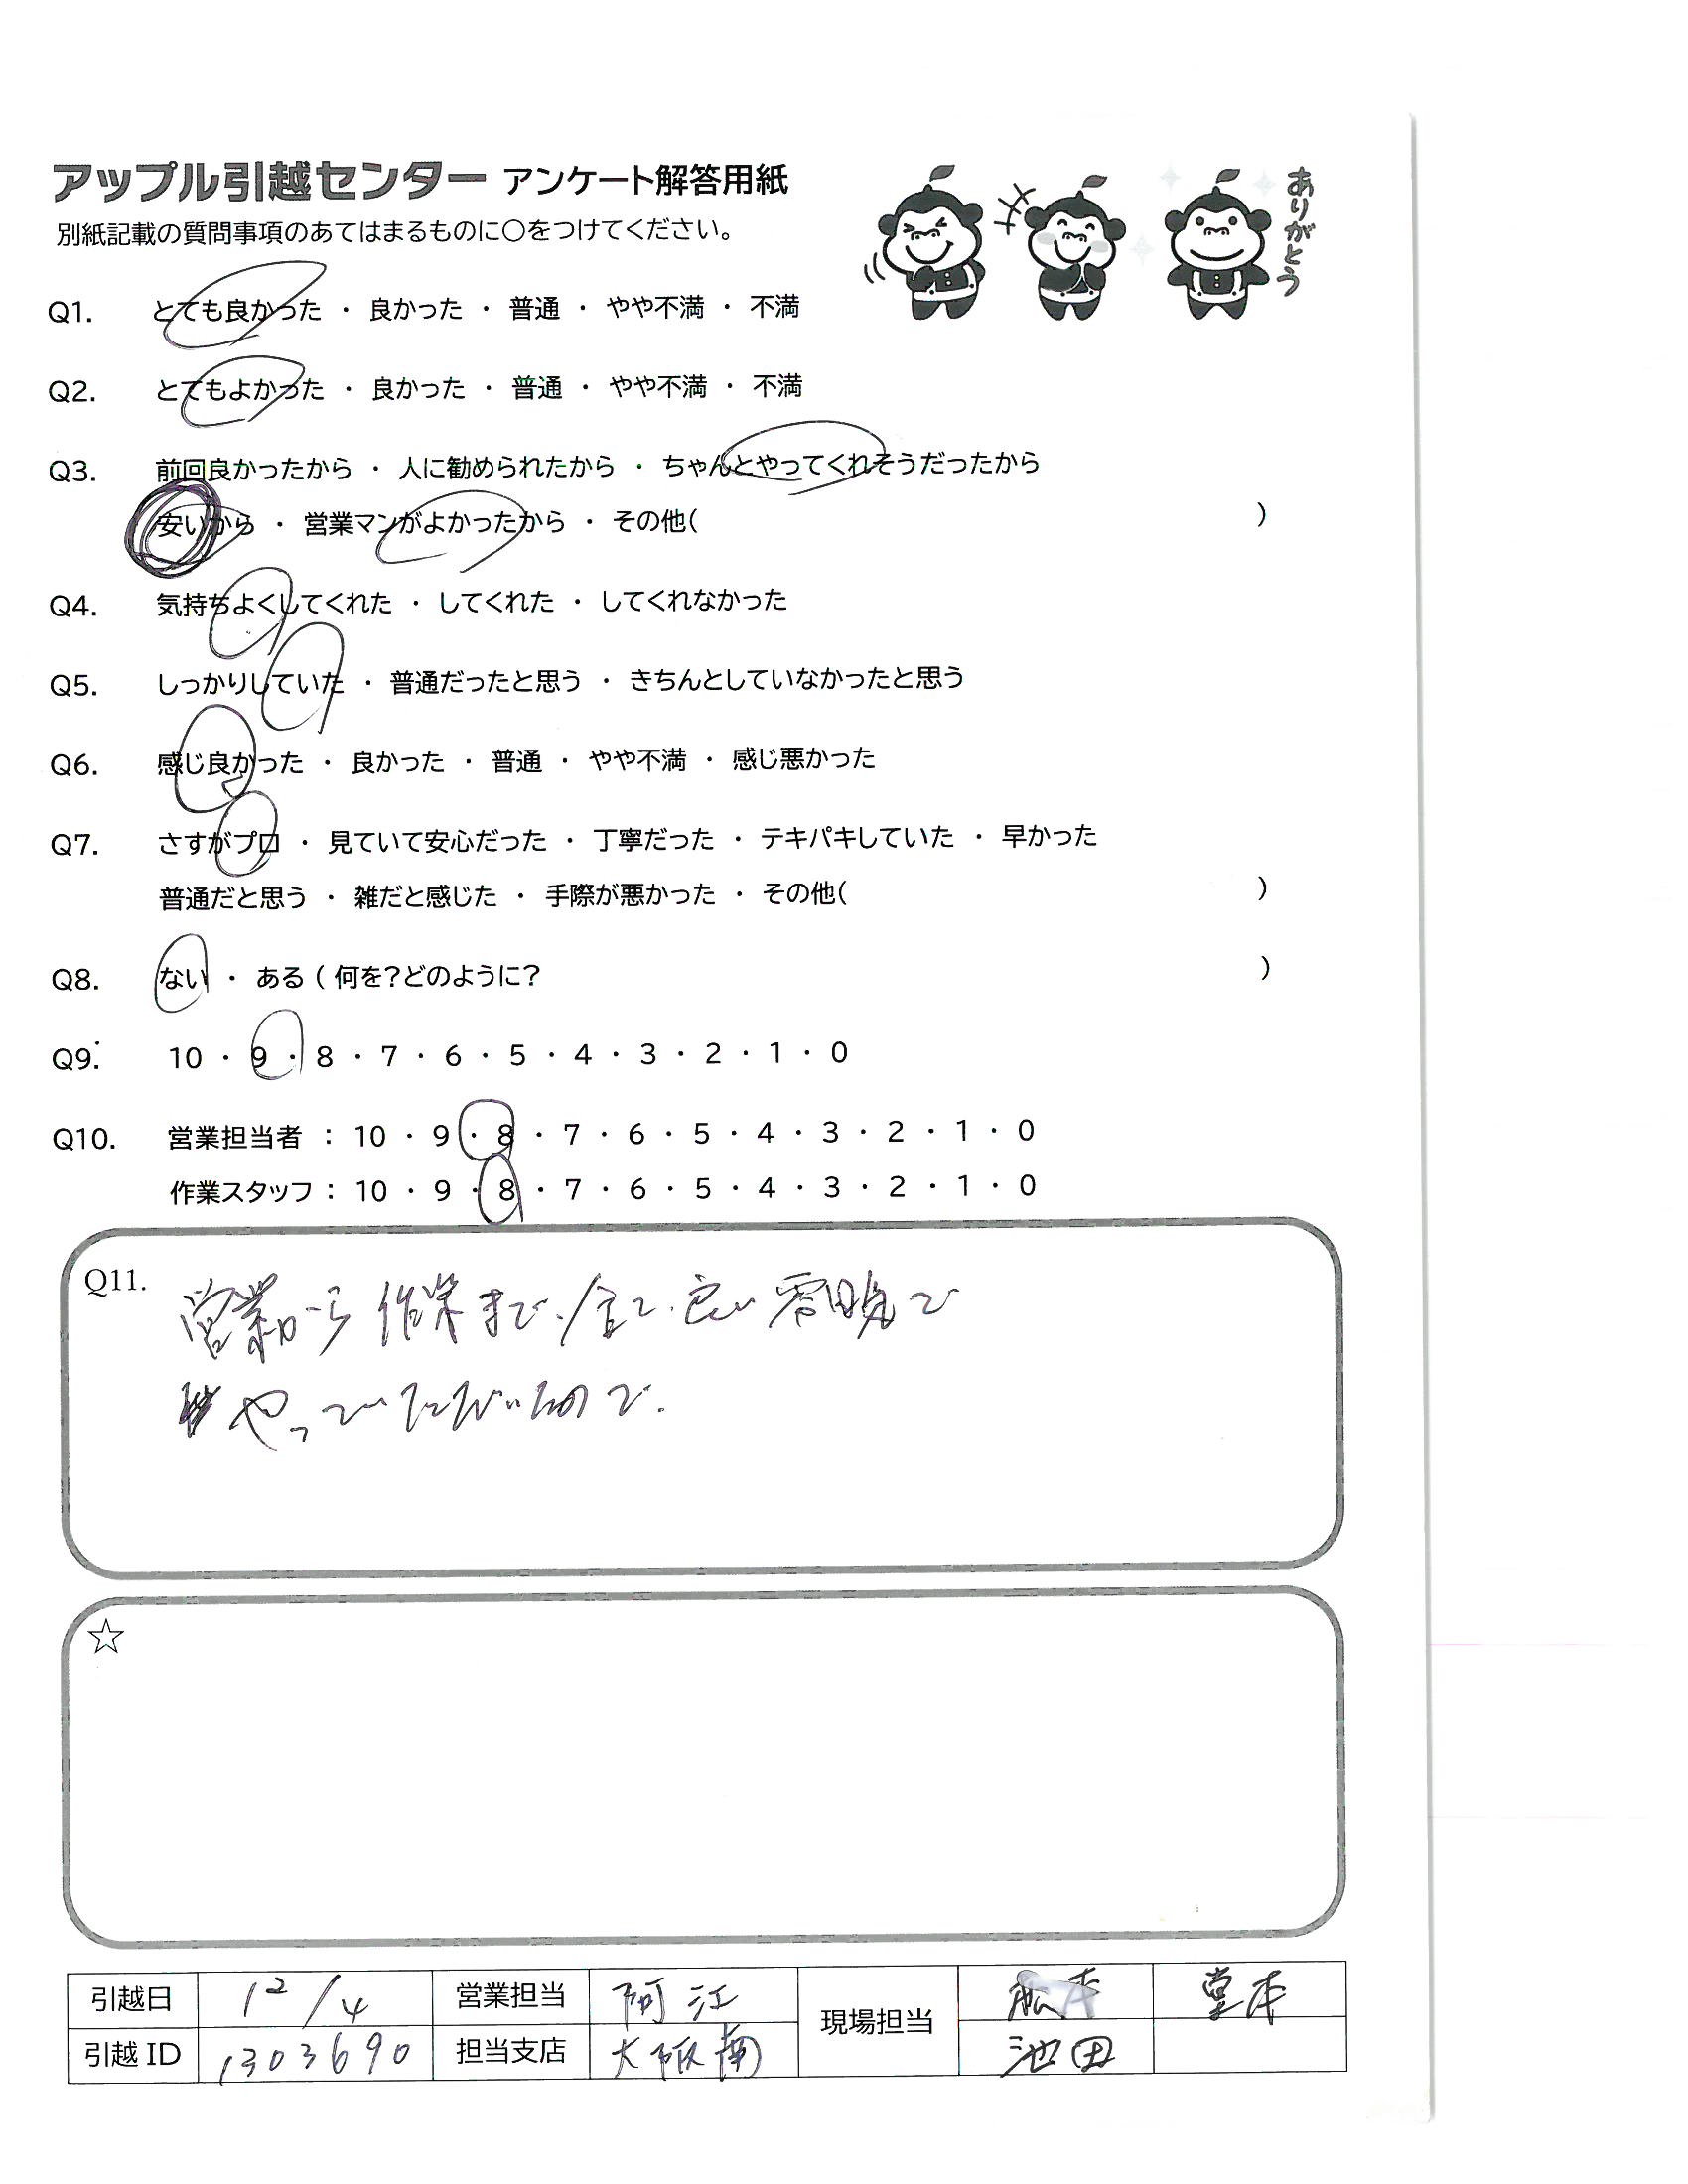 アップル引越センター アンケート解答用紙
ありがとう
別紙記載の質問事項のあてはまるものに○をつけてください。
Q1. とても良かった ・ 良かった ・ 普通 ・ やや不満 ・ 不満
Q2. とてもよかった ・ 良かった ・ 普通 ・ やや不満 ・ 不満
Q3. 前回良かったから ・ 人に勧められたから ・ ちゃんとやってくれそうだったから
安いから ・ 営業マンがよかったから ・ その他( )
Q4. 気持ちよくしてくれた ・ してくれた ・ してくれなかった
Q5. しっかりしていた ・ 普通だったと思う ・ きちんとしていなかったと思う
Q6. 感じ良かった ・ 良かった ・ 普通 ・ やや不満 ・ 感じ悪かった
Q7. さすがプロ ・ 見ていて安心だった ・ 丁寧だった ・ テキパキしていた ・ 早かった
普通だと思う ・ 雑だと感じた ・ 手際が悪かった ・ その他( )
Q8. ない ・ ある ( 何を?どのように? )
Q9. 10 ・ 9 ・ 8 ・ 7 ・ 6 ・ 5 ・ 4 ・ 3 ・ 2 ・ 1 ・ 0
Q10. 営業担当者 : 10 ・ 9 ・ 8 ・ 7 ・ 6 ・ 5 ・ 4 ・ 3 ・ 2 ・ 1 ・ 0
作業スタッフ : 10 ・ 9 ・ 8 ・ 7 ・ 6 ・ 5 ・ 4 ・ 3 ・ 2 ・ 1 ・ 0
Q11. 営業から作業まで、全て、良い雰囲気で
やっていただいたので.
☆
引越日 12/4 営業担当 阿江 現場担当 松本 堂本
引越ID 1303690 担当支店 大阪南 池田